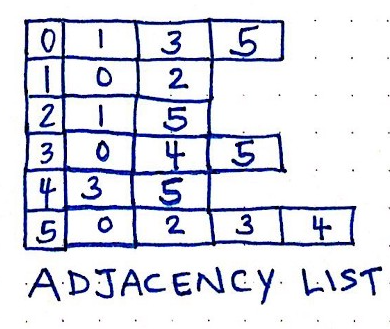 0 1 3 5
1 0 2
2 1 5
3 0 4 5
4 3 5
5 0 2 3 4
ADJACENCY LIST